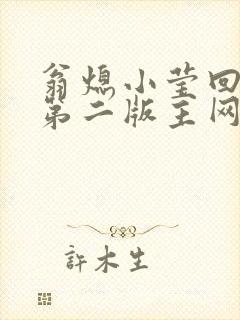 翁熄小莹回
第二版主网
許木生